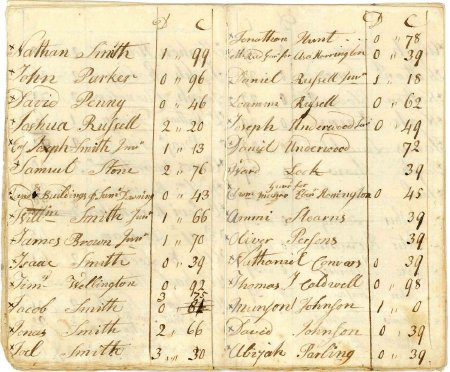 D C
Nathan Smith 1 " 99
John Parker 0 " 96
David Penny 0 " 46
Joshua Russell 2 " 20
Joseph Smith Junr 1 " 13
Samuel Stone 2 " 76
Buildings of 0 " 43
Will Smith Junr 1 " 66
James Brown Junr 1 " 70
Isaac Smith 0 " 39
Wellington 0 " 92
Jacob Smith 0
Jonas Smith 2 " 66
Joel Smith 3 " 30
D C
Jonathan Hunt 0 " 78
for 0 " 39
Daniel Russell Junr 1 " 18
Russell 0 " 62
Joseph Underwood 0 " 49
Daniel Underwood 72
Ward Lock 39
0 " 45
Ammi Stearns 39
Oliver Persons 39
Nathaniel Convars 0 39
Thomas J Caldwell 0 " 98
Munson Johnson 1 " 0
David Johnson 0 " 39
Abijah 0 " 39